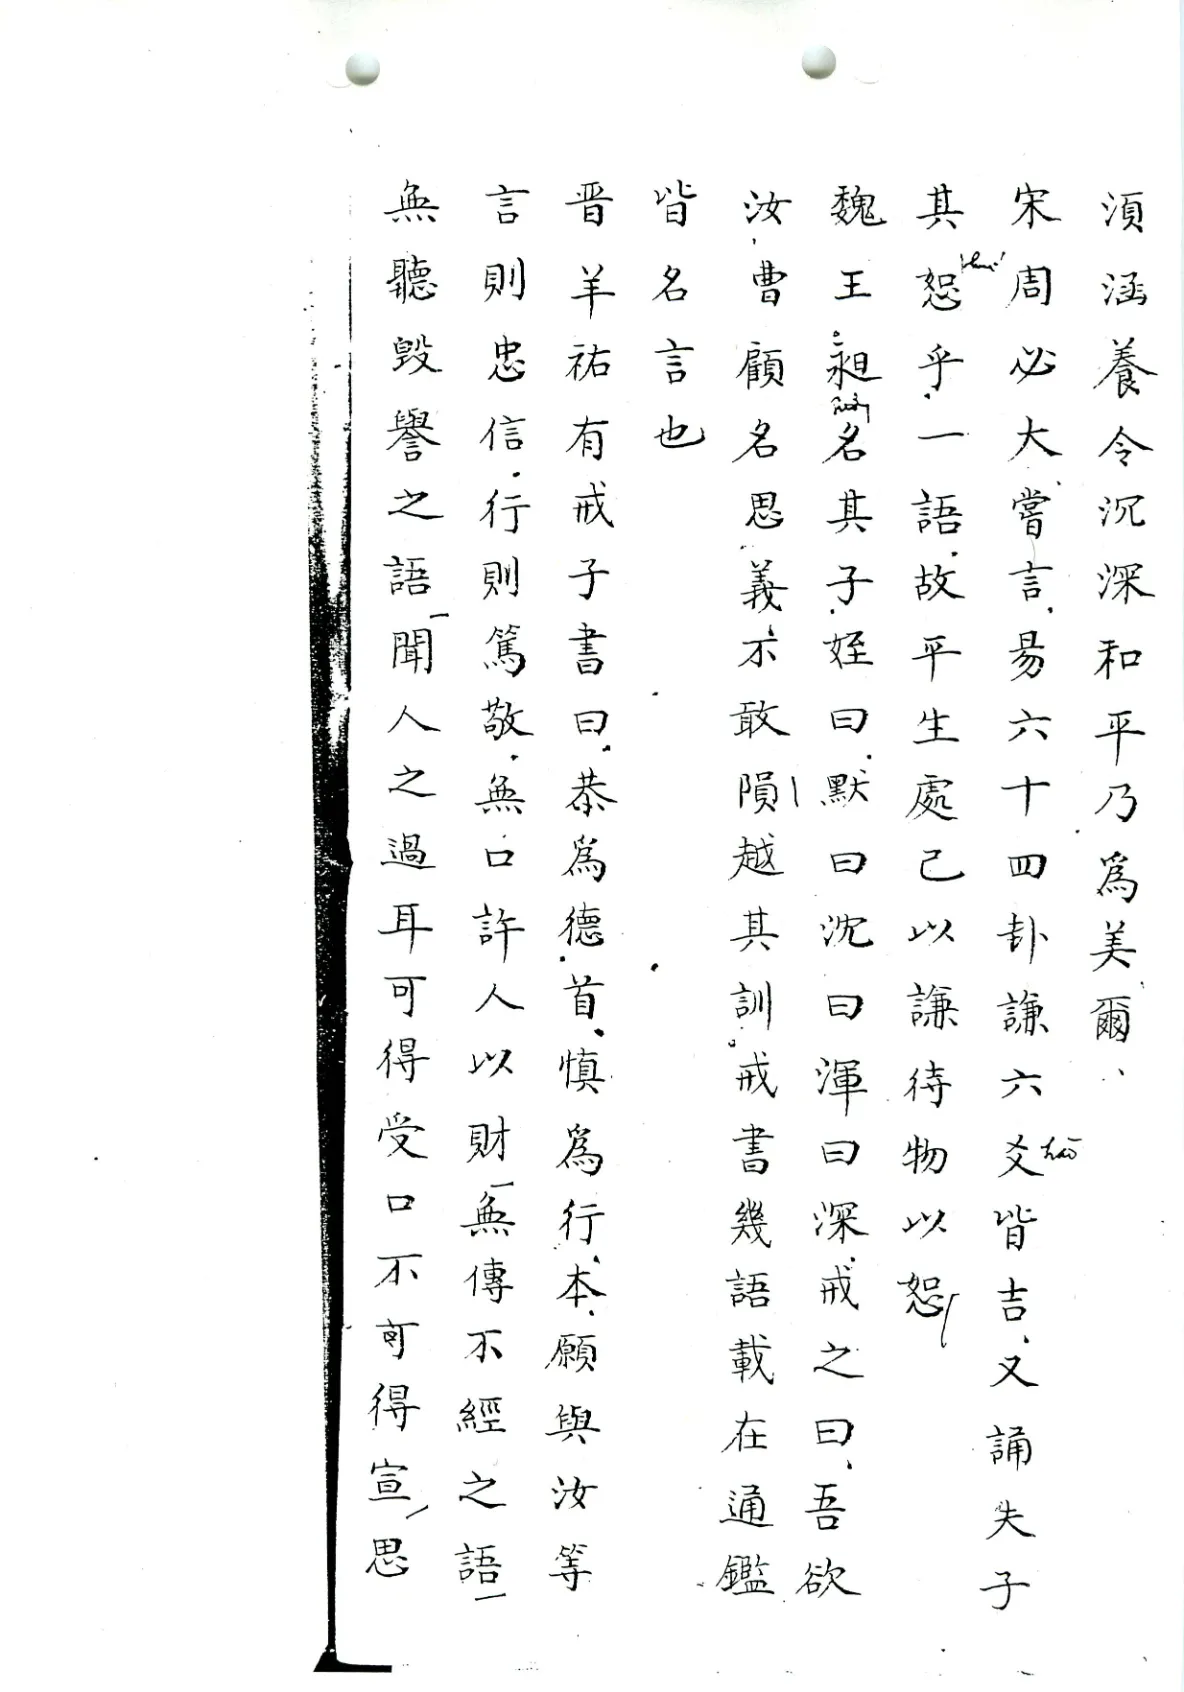 湏涵養令沉深和平乃爲美爾
宋周必大嘗言易六十四卦謙六爻皆吉又誦失子
其恕乎一語故平生處己以謙待物以恕
魏王昶名其子姪曰默曰沈曰渾曰深戒之曰吾欲
汝曹顧名思義不敢隕越其訓戒書幾語載在通鑑
皆名言也
晋羊祜有戒子書曰恭爲德首慎爲行本願與汝等
言則忠信行則篤敬無口許人以財無傳不經之語
無聽毀譽之語聞人之過耳可得受口不可得宣思